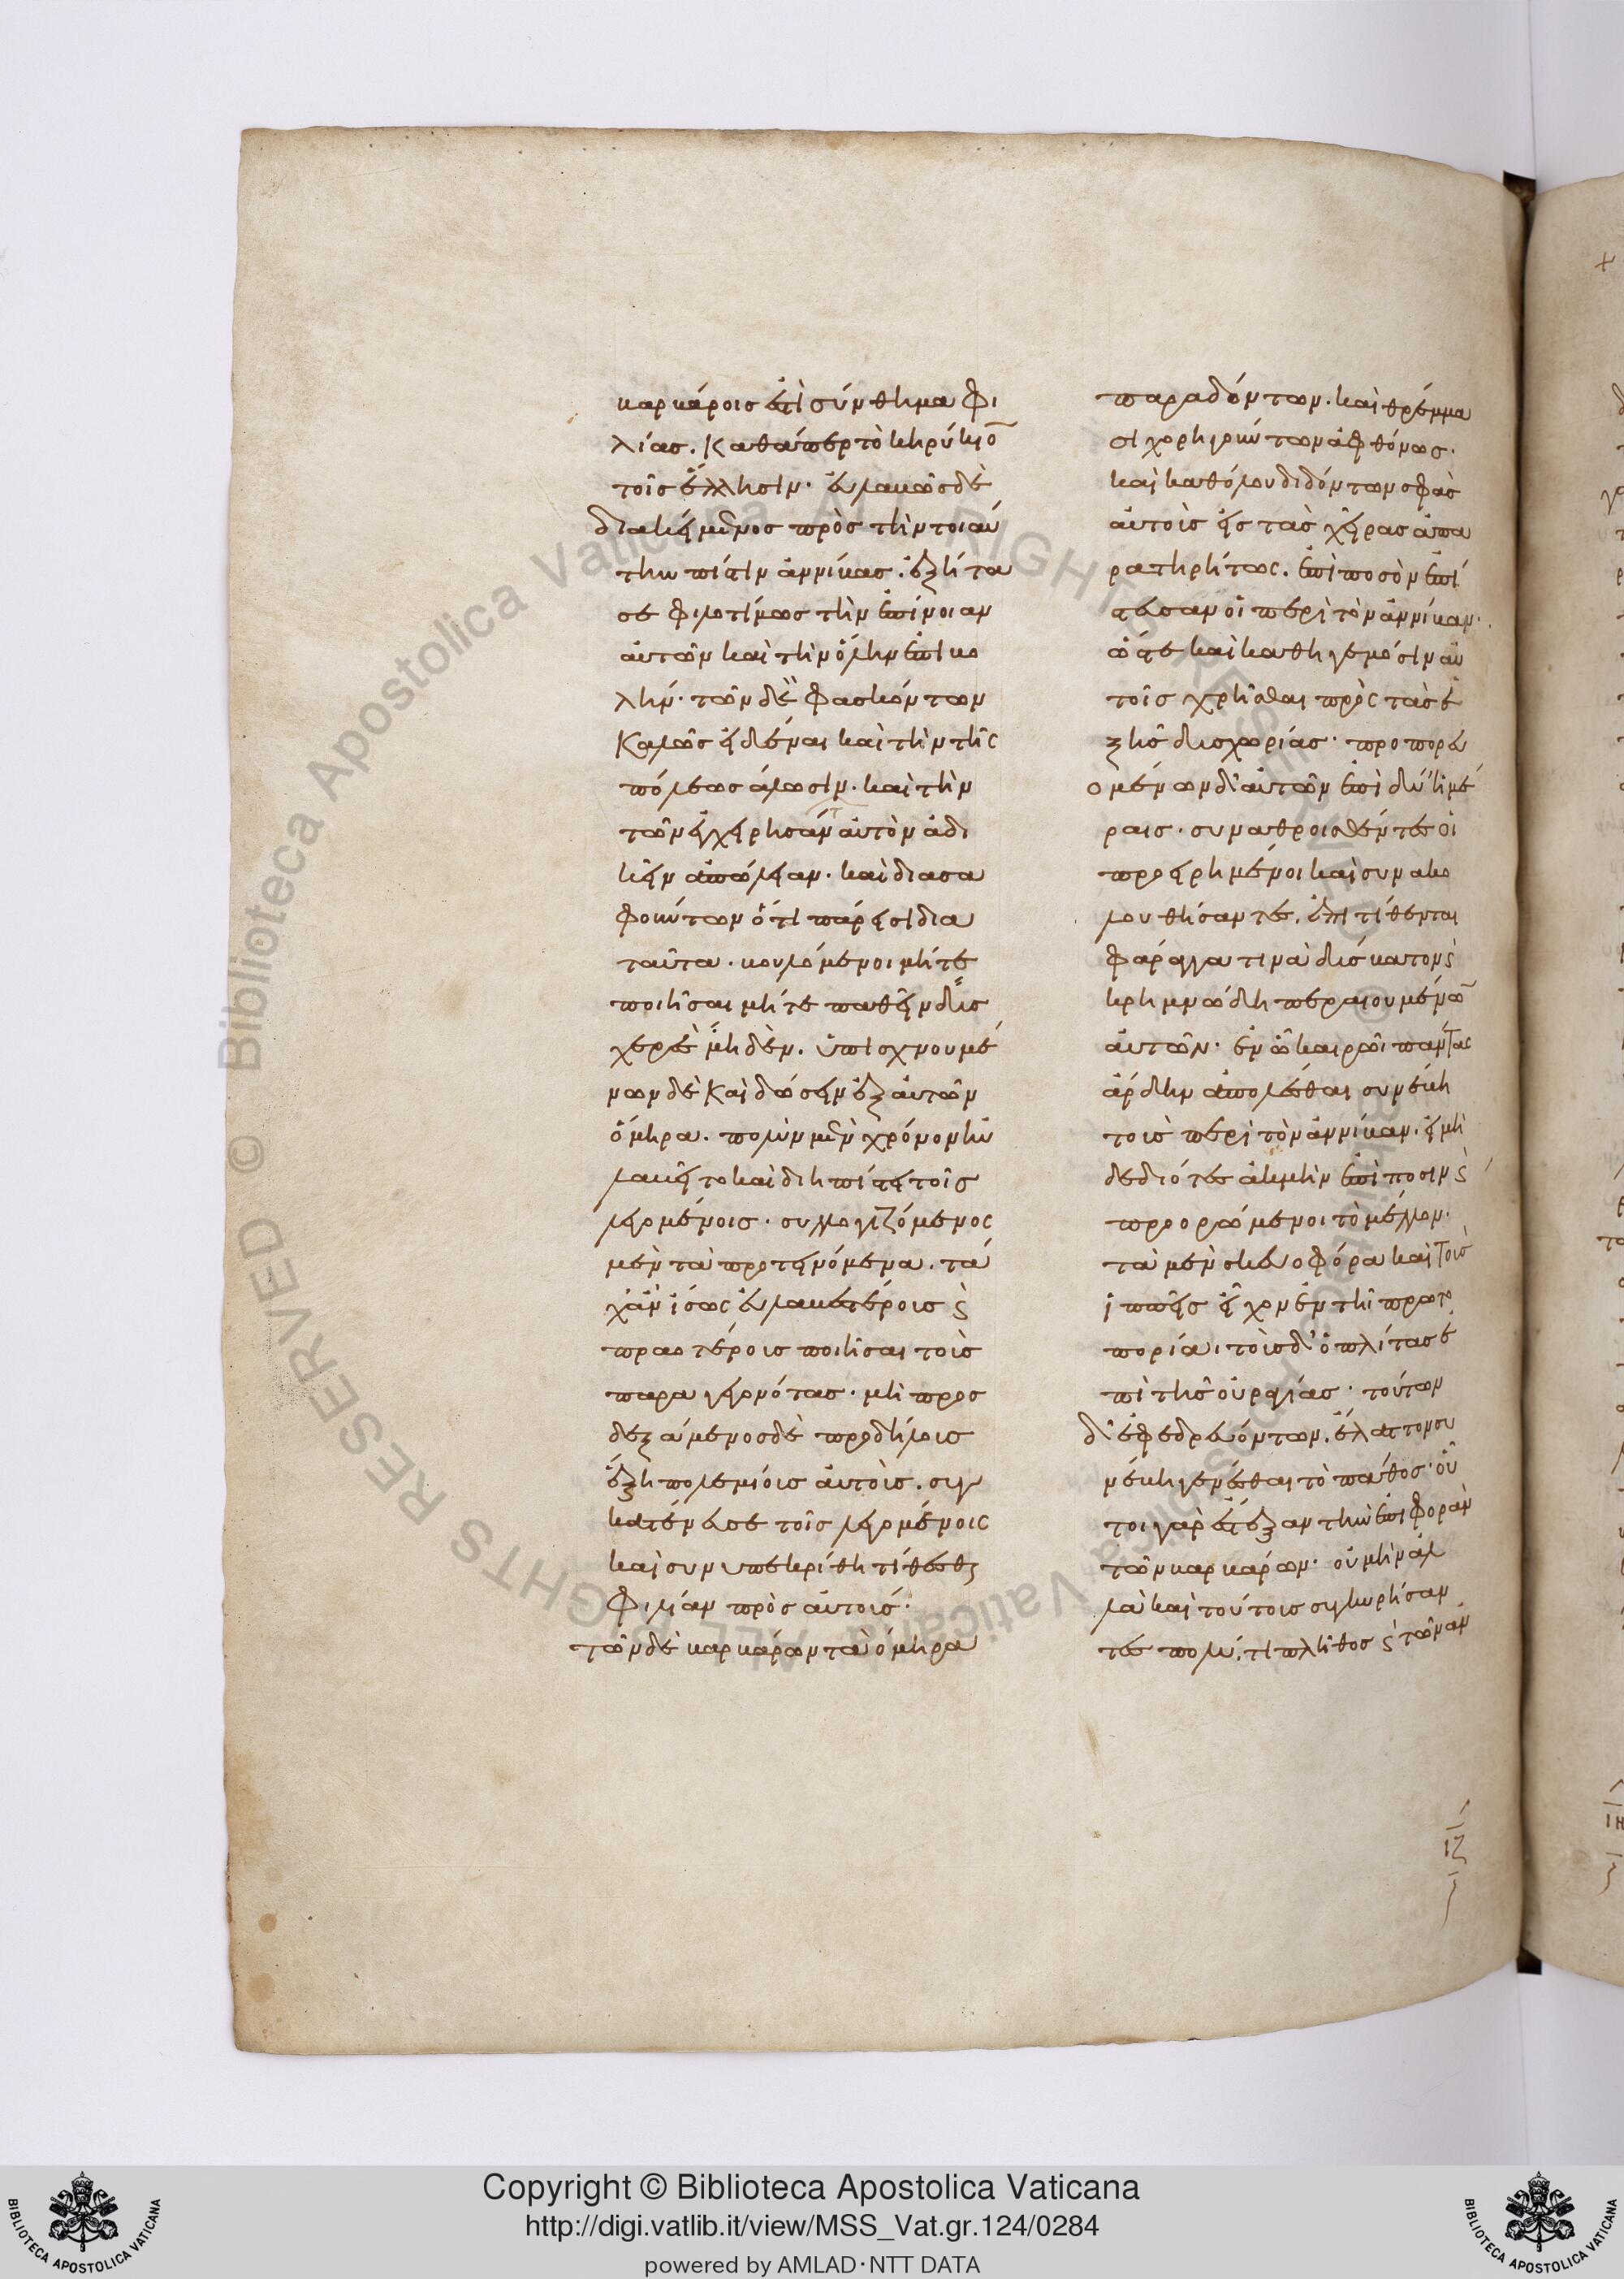 βαρβάροις ἐστὶ σύνθημα φι
λίας. καθάπερ τὸ κηρύκιο̅
τοῖς ἕλλησιν. εὐλαβῶς δὲ
διακείμενος πρὸς τὴν τοιαύ
την πίστιν ἀννίβας. ἐξήτα
σε φιλοτίμως τὴν ἐπίνοιαν
αὐτῶν καὶ τὴν ὅλην ἐπιβο
λήν. τῶν δὲ φασκόντων
καλῶς εἰδέναι καὶ τὴν τῆς
πόλεως ἅλωσιν. καὶ τὴν
τῶν ἐγχειρησάντων αὐτὸν ἀδι
κεῖν ἀπώλειαν. καὶ διασα
φούντων ὅτι πάρεισι δια
ταῦτα. βουλόμενοι μήτε
ποιῆσαι μήτε παθεῖν δυσ
χερὲς μηδέν. ὑπισχνουμέ
νων δὲ καὶ δώσειν ἐξ αὐτῶν
ὅμηρα. πολὺν μὲν χρόνον ηὐ
λαβεῖτο καὶ διηπίστει τοῖς
λεγομένοις. συλλογιζόμενος
μὲν τὰ προτεινόμενα. τά
χ' ἂν ἴσως εὐλαβεστέρους ϛ
πραοτέρους ποιῆσαι τοὺς
παραγεγονότας. μὴ προσ
δεξάμενος δὲ προδήλους
ἕξει πολεμίους αὐτοὺς. συγ
κατένευσε τοῖς λεγομένοις
καὶ συνυπεκρίθη τίθεσθαι
φιλίαν πρὸς αὐτούς.
τῶν δὲ βαρβάρων τὰ ὅμηρα
παραδόντων. καὶ θρέμμα
σι χορηγούντων ἀφθόνως.
καὶ καθόλου διδόντων σφᾶς
αὐτοὺς εἰς τὰς χεῖρας ἀπα
ρατηρήτως. ἐπὶ ποσὸν ἐπί
στευσαν οἱ περὶ τὸν ἀννίβαν.
ὥστε καὶ καθηγεμόσιν αὐ
τοῖς χρῆσθαι πρὸς τὰς ἑ
ξῆς δυσχωρίας. προπορευ
ομένων δ' αὐτῶν ἐπὶ δύ' ἡμέ
ραις. συναθροισθέντες οἱ
προειρημένοι καὶ συνακο
λουθήσαντες. ἐπιτίθενται
φάραγγα τινὰ δύσβατον ϛ
κρημνώδη περαιουμένω̅
αὐτῶν. ἐν ὧ καιρῶι πάντας
ἄρδην ἀπολέσθαι συνέβη
τοὺς περὶ τὸν ἀννίβαν. εἰ μὴ
δεδιότες ἀκμὴν ἐπὶ ποσὶν ϛ
προορώμενοι τὸ μέλλον.
τὰ μὲν σκευοφόρα καὶ τοὺς
ἱππεῖς εἶχον ἐν τῆ πρωτο
πορίαι τοὺς δ' ὁπλίτας ἐ
πὶ τῆς οὐραγίας. τούτων
δ' ἐφεδρευόντων. ἔλαττον συ
νέβη γενέσθαι τὸ πάθος. οὗ
τοι γὰρ ἔστεξαν τὴν ἐπιφορὰν
τῶν βαρβάρων. οὐ μὴν ἀλ
λὰ καὶ τούτους συγκυρήσαν
τες πολύ. τι πλῆθος ϛ τῶν ἀν
ιζ